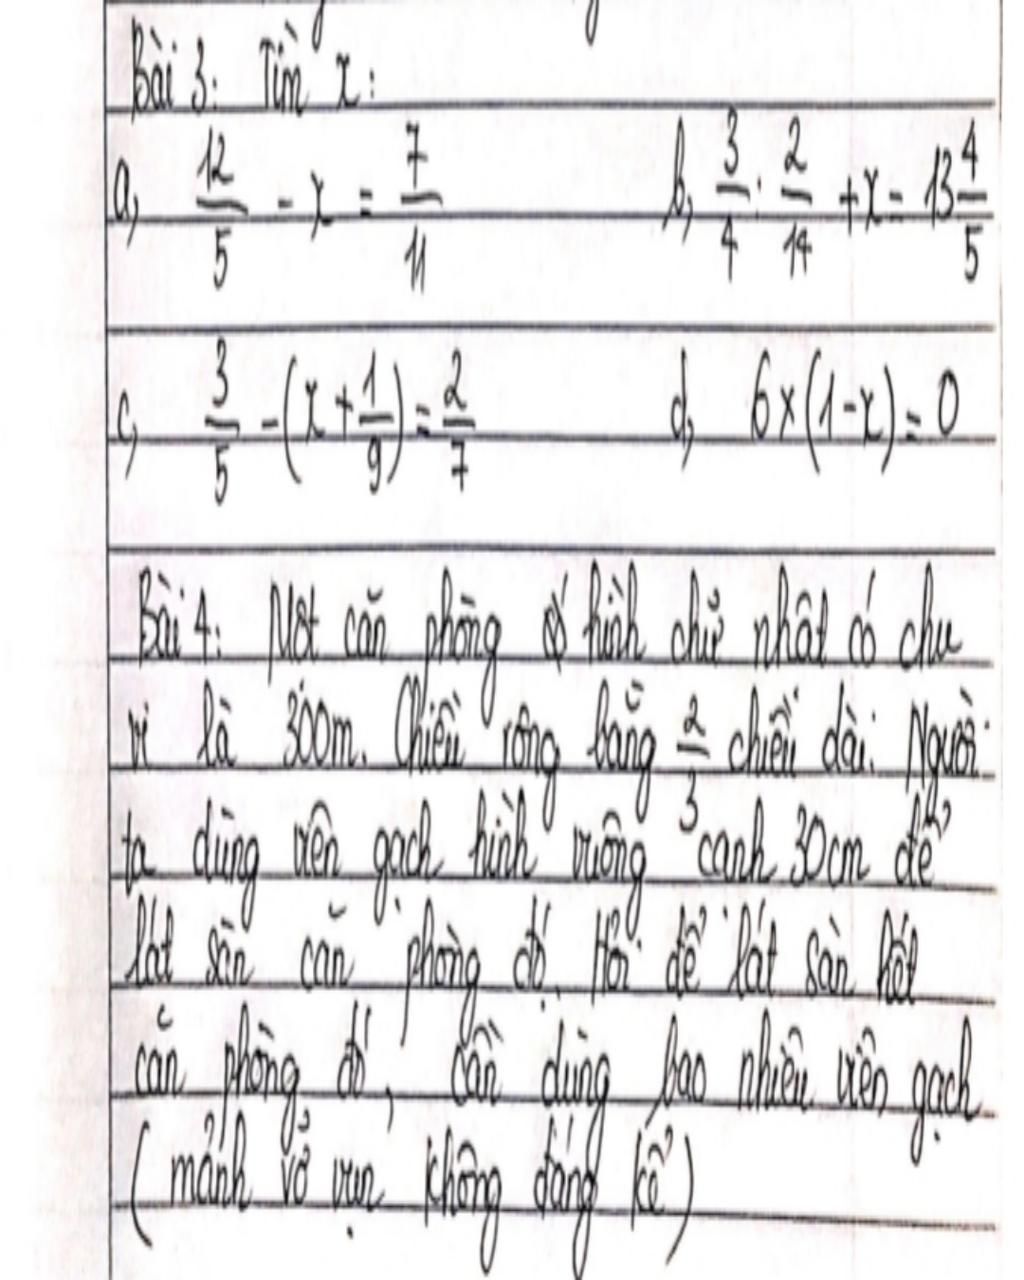 Bài 3: Tìm x:
a, 12/5 - x = 7/11 b, 3/4 : 2/14 + x = 13 4/5
c, 3/5 - (x + 1/9) = 2/7 d, 6 x (1 - x) = 0
Bài 4: Một căn phòng hình chữ nhật có chu
vi là 300m. Chiều rộng bằng 2/3 chiều dài. Người
ta dùng viên gạch hình vuông cạnh 30cm để
lát sàn căn phòng đó. Hỏi để lát sàn hết
căn phòng đó, cần dùng bao nhiêu viên gạch
(mảnh vỡ vụn không đáng kể)